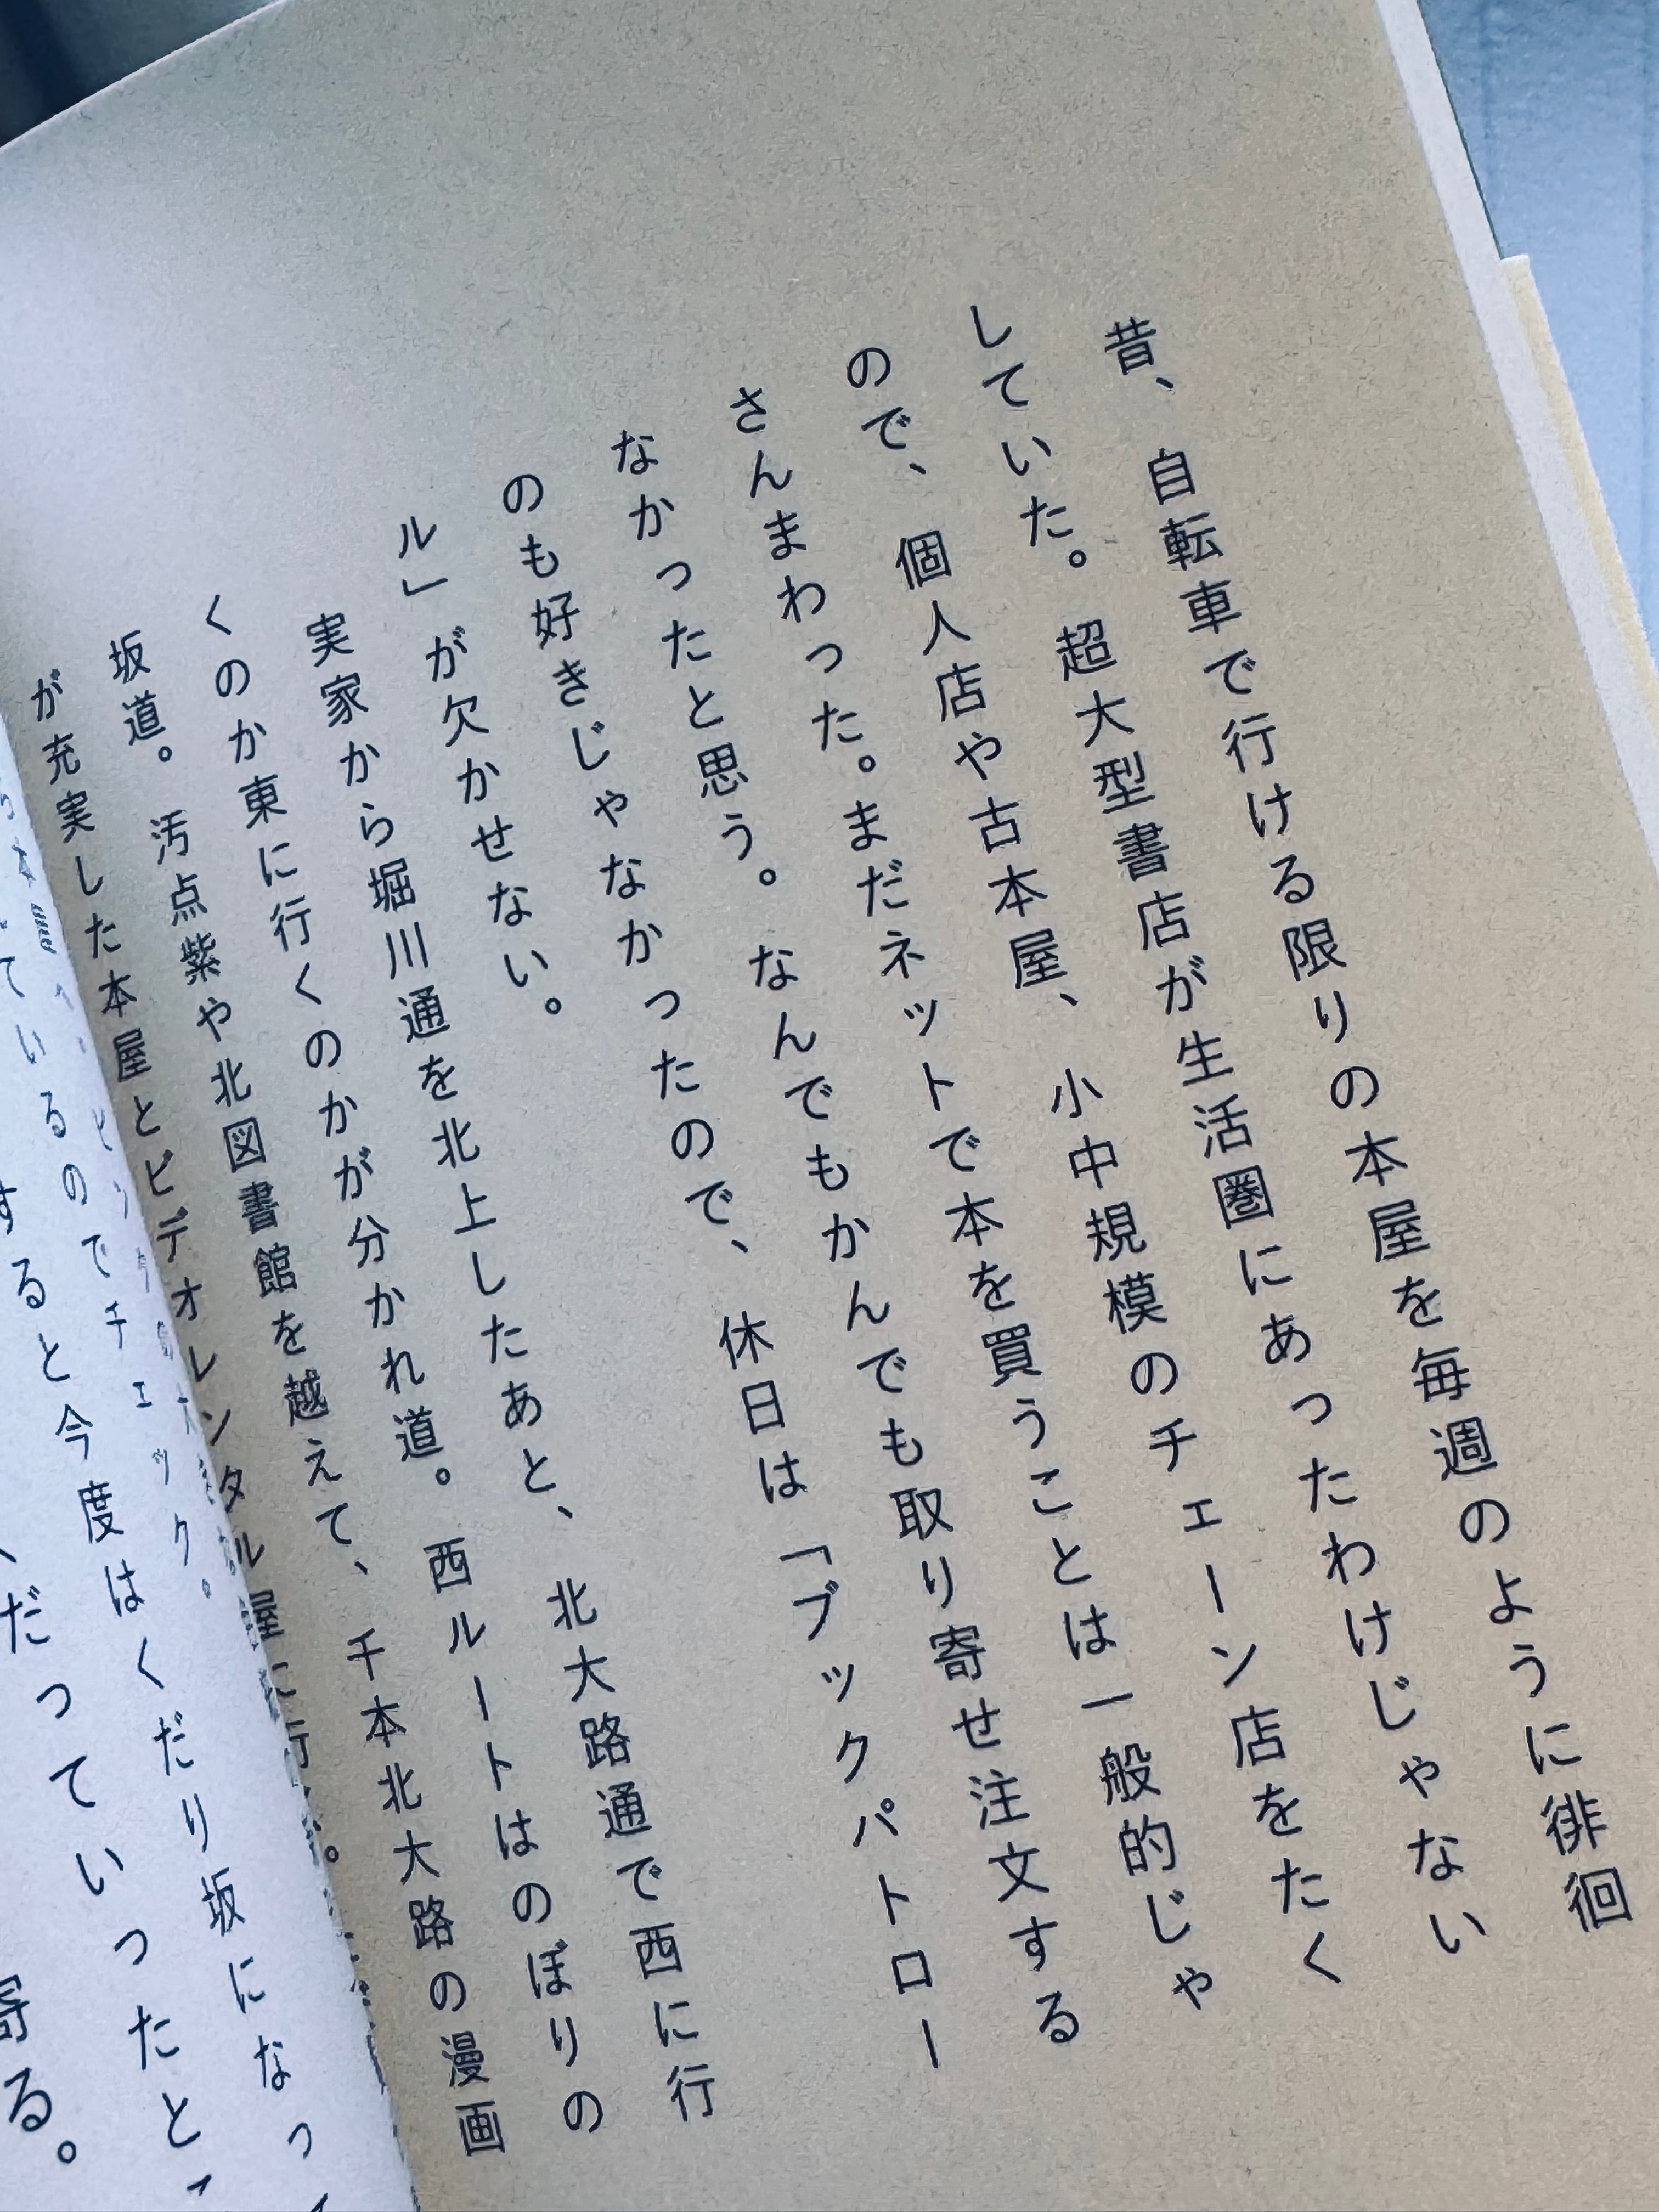 昔、自転車で行ける限りの本屋を毎週のように徘徊
していた。超大型書店が生活圏にあったわけじゃない
ので、個人店や古本屋、小中規模のチェーン店をたく
さんまわった。まだネットで本を買うことは一般的じゃ
なかったと思う。なんでもかんでも取り寄せ注文する
のも好きじゃなかったので、休日は「ブックパトロー
ル」が欠かせない。
実家から堀川通を北上したあと、北大路通で西に行
くのか東に行くのかが分かれ道。西ルートはのぼりの
坂道。汚点紫や北図書館を越えて、千本北大路の漫画
が充実した本屋とビデオレンタル屋に行く。
ているのでチェック。
すると今度はくだり坂になっ
くだっていったと
寄る。